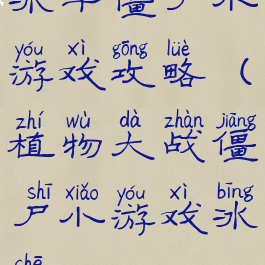 冰车僵尸冰
yóu xì gōng lüè
游戏攻略（
zhí wù dà zhàn jiāng
植物大战僵
shī xiǎo yóu xì bīng
尸小游戏冰
chē